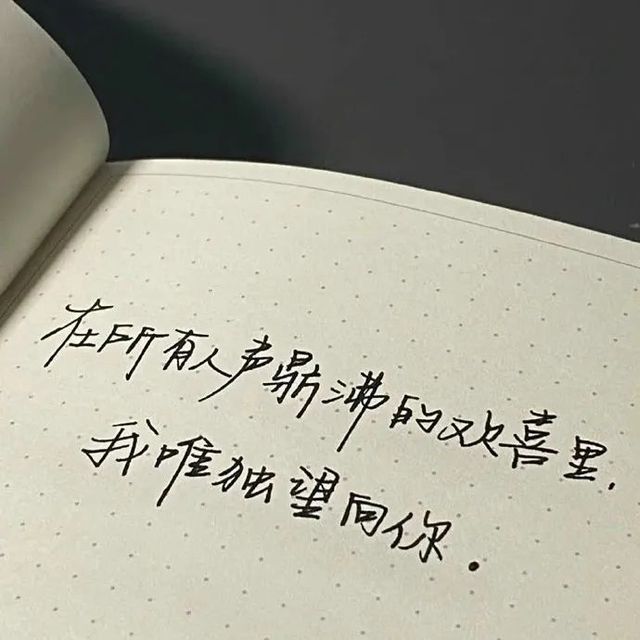 在所有人声鼎沸的欢喜里.
我唯独望向你.